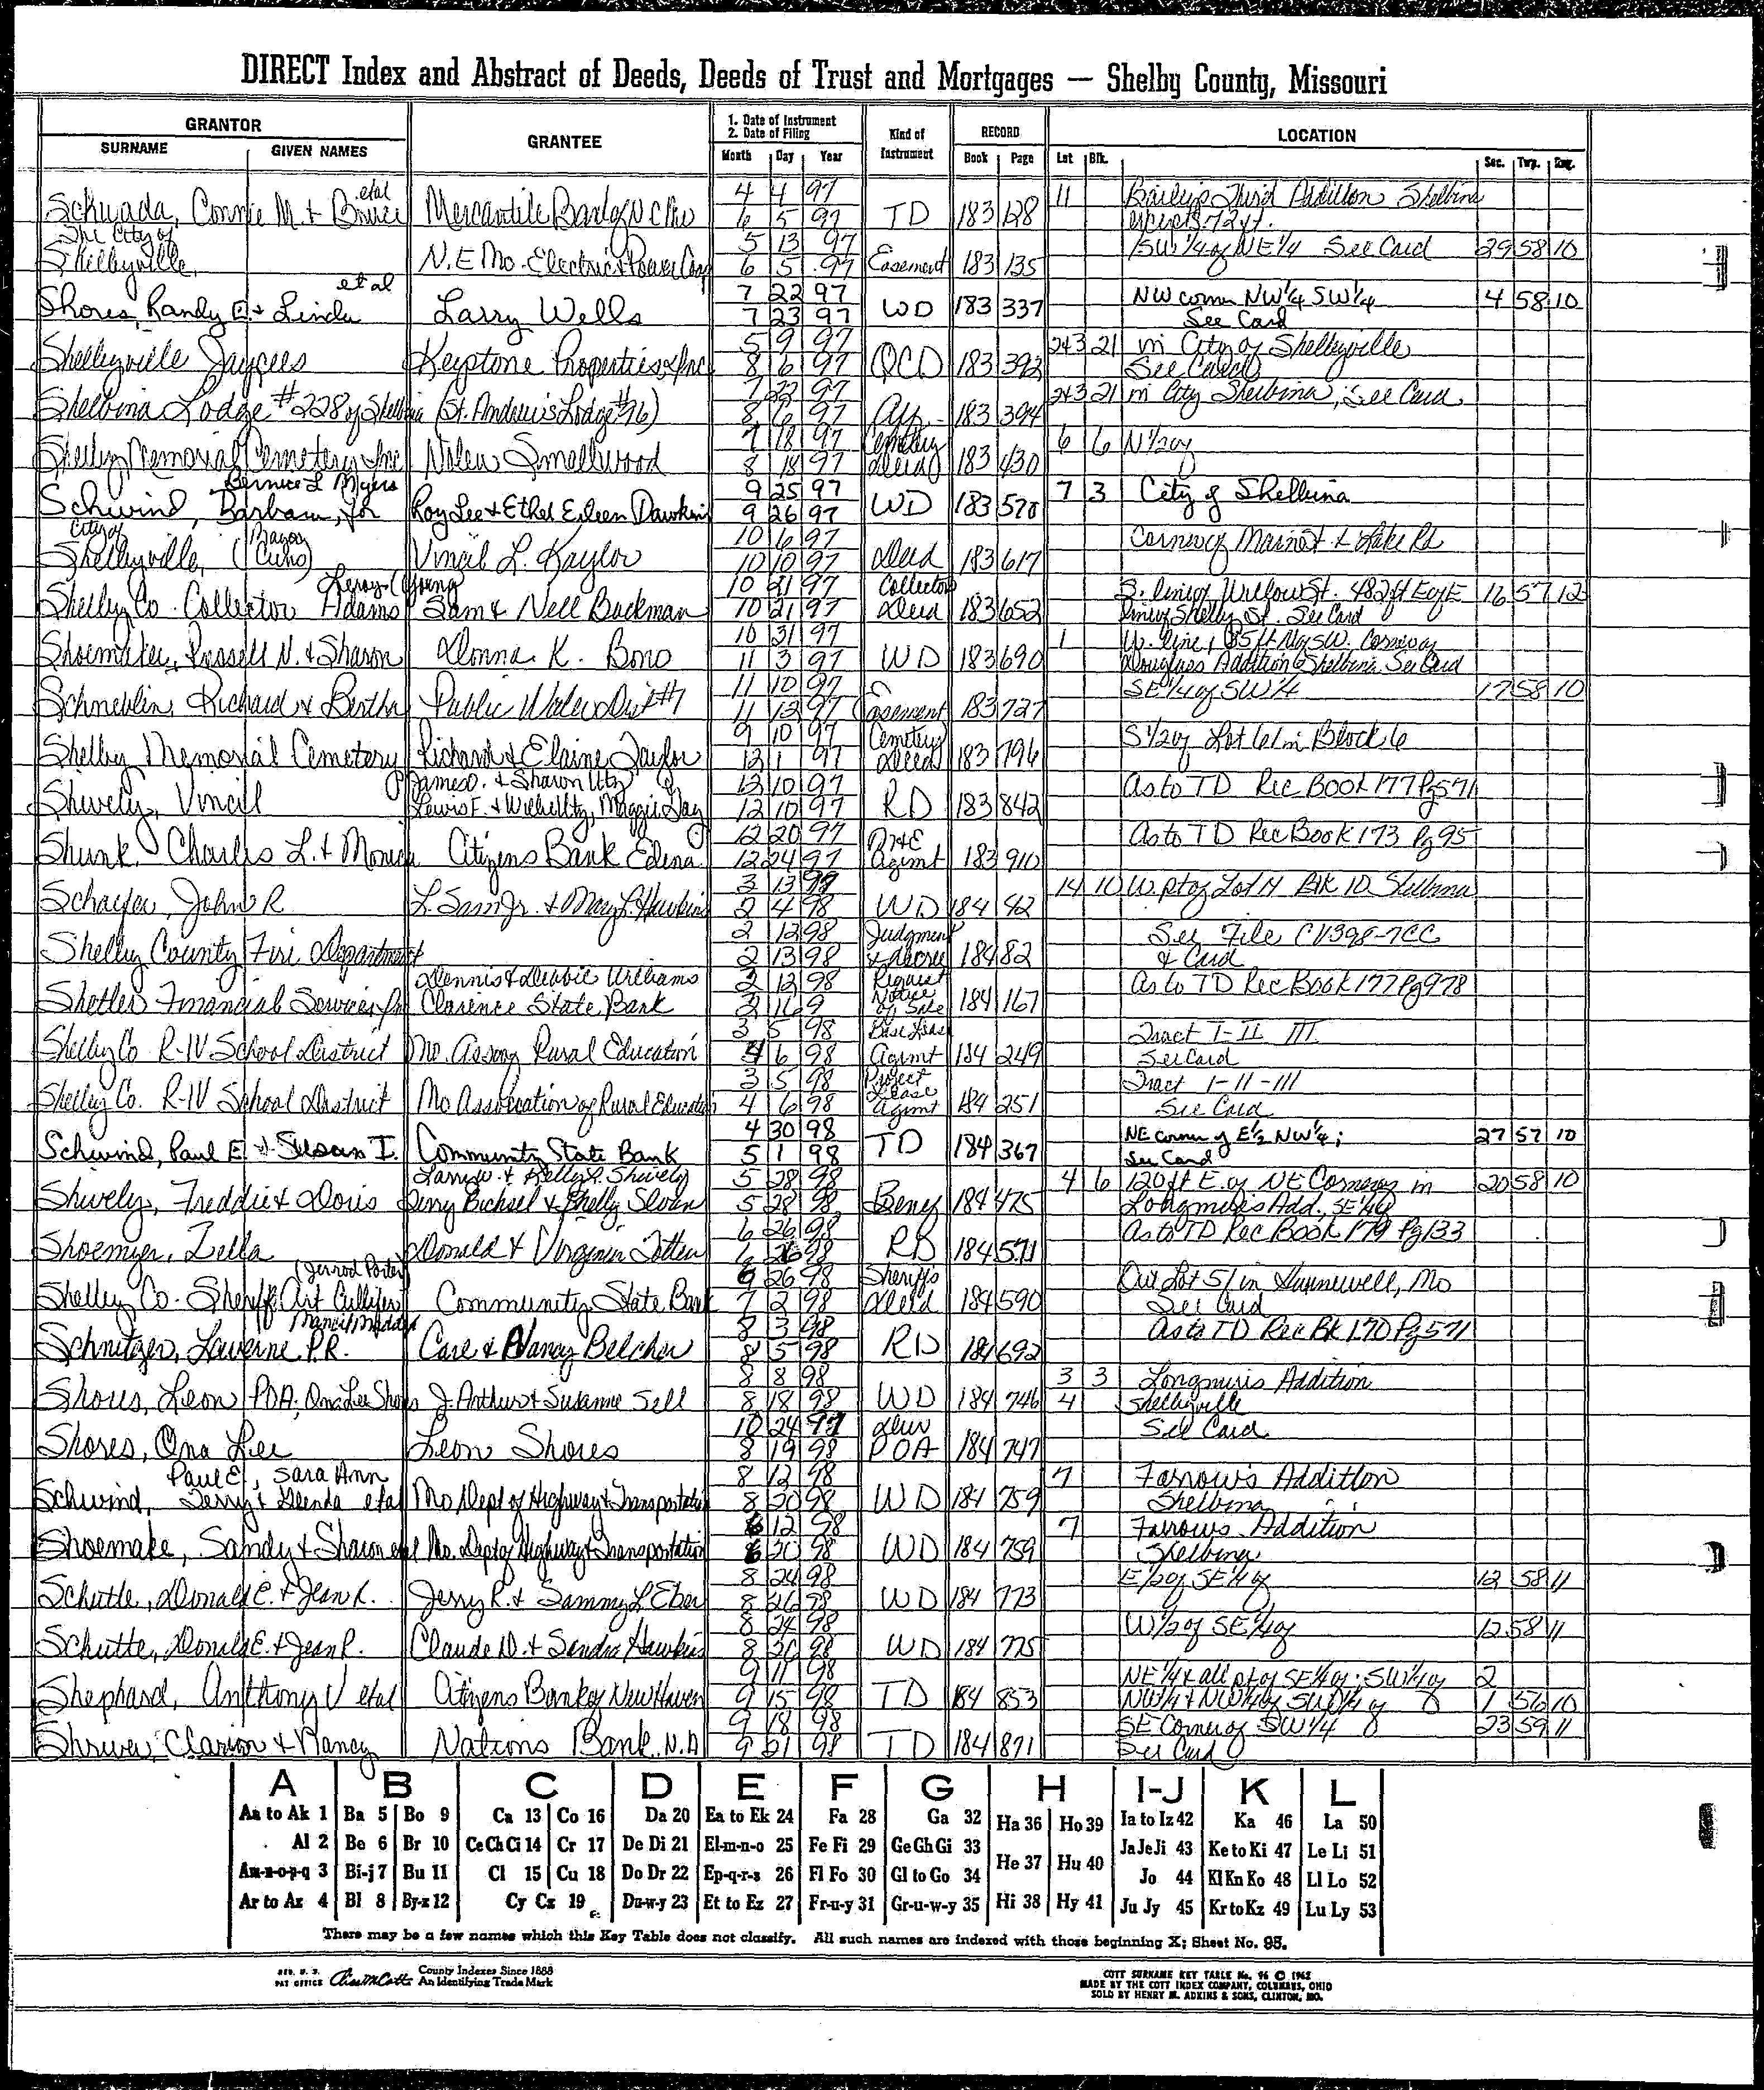 DIRECT Index and Abstract of Deeds, Deeds of Trust and Mortgages — Shelby County, Missouri
GRANTOR GRANTEE 1. Date of Instrument 2. Date of Filing Kind of Instrument RECORD LOCATION
SURNAME GIVEN NAMES Month Day Year Book Page Lot Blk. Sec. Twp. Rng.
etal 4 4 97 11 Third Addition Shelbina
Schwada, Connie M. + Bruce Mercantile Bank of N C Mo 6 5 97 TD 183 128
The City of 5 13 97 SW 1/4 of NE 1/4 See Card 29 58 10
Shelbyville, N.E Mo. Electric + Power Coop 6 5 97 Easement 183 135
et al 7 22 97 NW corner NW 1/4 SW 1/4 4 58 10
Shores, Randy E. + Linda Larry Wells 7 23 97 WD 183 337 See Card
5 9 97 2+3 21 in City of Shelbyville
Shelbyville Jaycees Keystone Properties, Inc 8 6 97 QCD 183 392 See Card
7 22 97 2+3 21 in City Shelbina, See Card
Shelbina Lodge #228 of Shelbina (St. Andrew's Lodge #96) 8 6 97 Aff 183 394
7 18 97 Cemetery 6 6 N 1/2 of
Shelby Memorial Cemetery Inc Nolen Smallwood 8 18 97 Deed 183 430
Bernice L Myers 9 25 97 7 3 City of Shelbina
Schwind, Barbara, for Roy Lee + Ethel Eileen Dawkins 9 26 97 WD 183 570
City of Mayor 10 6 97 Corner of Main St. + Lake Rd
Shelbyville, Vincil L. Kaylor 10 10 97 Deed 183 617
Leroy (Young 10 21 97 Collectors S. line of Willow St. 482 ft E of E 16 57 12
Shelby Co. Collector Adams Sam + Nell Buckman 10 21 97 Deed 183 652 line of Shelby St. See Card
10 31 97 1 W. line, 185 ft N of SW. Corner of
Shoemaker, Russell N. + Sharon Donna K. Bono 11 3 97 WD 183 690 Douglass Addition Shelbina See Card
11 10 97 SE 1/4 of SW 1/4 17 58 10
Schneblin, Richard + Bertha Public Water Dist #1 11 12 97 Easement 183 727
9 10 97 Cemetery S 1/2 of Lot 6 in Block 6
Shelby Memorial Cemetery Richard + Elaine Taylor 12 1 97 Deed 183 796
James O. + Sharon Utz 12 10 97 As to TD Rec Book 177 Pg 571
Shively, Vincil Lewis F. + Utz, Maggie Day 12 10 97 RD 183 842
12 20 97 As to TD Rec Book 173 Pg 95
Shunk Charles L. + Monica Citizens Bank Edina 12 24 97 Agmt 183 910
3 13 97 14 10 W. pt of Lot 14 Blk 10 Shelbina
John R L. Sam Jr. + Mary L. Hawkins 2 4 98 WD 184 42
2 12 98 Judgment See File CV398-7CC
Shelby County Fire Department 2 13 98 + decree 184 82 & Card
Dennis + Debbie Williams 2 12 98 Request As to TD Rec Book 177 Pg 978
Shetler Financial Services Inc Clarence State Bank 2 16 9 Notice of Sale 184 167
3 5 98 Base Lease Tract I-II III
Shelby Co R-IV School District Mo. Assoc of Rural Education 4 6 98 Agrmt 184 249 See Card
3 5 98 Project Tract I-II-III
Shelby Co. R-IV School District Mo Association of Rural Education 4 6 98 Lease Agmt 184 251 See Card
4 30 98 NE corner of E 1/2 NW 1/4; 27 57 10
Schwind, Paul E + Susan I. Community State Bank 5 1 98 TD 184 367 See Card
Larry W. + Kelly R. Shively 5 28 98 4 6 120 ft E. of NE Corner of in 20 58 10
Shively, Freddie + Doris Perry Bichsel + Shelly Sloan 5 28 98 Beney 184 475 Longmire's Add. SE 1/4
6 26 98 As to TD Rec Book 179 Pg 133
Shoemyer, Zella Donald + Virginia Totten 6 26 98 RD 184 571
(Jerrod Porter) 6 26 98 Sheriff's Out Lot 51 in Hunnewell, Mo
Shelby Co. Sheriff, Art Cullifer Community State Bank 7 2 98 Deed 184 590 See Card
8 3 98 As to TD Rec Bk 170 Pg 571
Schnitzer, Laverne P.R. Carl + Nancy Belcher 8 5 98 RD 184 692
8 8 98 3 3 Longmires Addition
Shores, Leon POA: Ona Lee Shores J. Arthur + Susanne Sell 8 18 98 WD 184 746 4 Shelbyville
10 24 97 Dur See Card
Shores, Ona Lee Leon Shores 8 19 98 POA 184 747
Paul E., Sara Ann 8 12 98 7 Farrow's Addition
Schwind, Terry + Glenda etal Mo Dept of Highway + Transportation 8 20 98 WD 184 759 Shelbina
8 12 98 7 Farrows Addition
Shoemake, Sandy + Sharon etal Mo. Dept of Highway + Transportation 8 20 98 WD 184 759 Shelbina
8 24 98 E 1/2 of SE 1/4 of 12 58 11
Schutte, Donald E. + Jean R. Jerry R. + Sammy L Eber 8 26 98 WD 184 773
8 24 98 W 1/2 of SE 1/4 of 12 58 11
Schutte, Donald E. + Jean R. Claude D. + Sandra Hawkins 8 26 98 WD 184 775
9 11 98 NE 1/4 + all pt of SE 1/4 of; SW 1/4 of 2
Shephard, Anthony V etal Citizens Bank of New Haven 9 15 98 TD 184 853 NW 1/4 + NW 1/4 of SW 1/4 of 1 56 10
9 18 98 SE Corner of SW 1/4 23 59 11
Shriver, Clarion + Nancy Nations Bank, N.A 9 21 98 TD 184 871 See Card
A B C D E F G H I-J K L
Aa to Ak 1 Ba 5 Bo 9 Ca 13 Co 16 Da 20 Ea to Ek 24 Fa 28 Ga 32 Ha 36 Ho 39 Ia to Iz 42 Ka 46 La 50
Al 2 Be 6 Br 10 Ce Ch Ci 14 Cr 17 De Di 21 El-m-n-o 25 Fe Fi 29 Ge Gh Gi 33 He 37 Hu 40 Ja Je Ji 43 Ke to Ki 47 Le Li 51
Am-n-o-p-q 3 Bi-j 7 Bu 11 Cl 15 Cu 18 Do Dr 22 Ep-q-r-s 26 Fl Fo 30 Gl to Go 34 Jo 44 Kl Kn Ko 48 Ll Lo 52
Ar to Az 4 Bl 8 By-z 12 Cy Cz 19 Du-w-y 23 Et to Ez 27 Fr-u-y 31 Gr-u-w-y 35 Hi 38 Hy 41 Ju Jy 45 Kr to Kz 49 Lu Ly 53
There may be a few names which this Key Table does not classify. All such names are indexed with those beginning X; Sheet No. 95.
REG. U. S. PAT OFFICE County Indexes Since 1888 An Identifying Trade Mark
COTT SURNAME KEY TABLE No. 96 © 1962
MADE BY THE COTT INDEX COMPANY, COLUMBUS, OHIO
SOLD BY HENRY M. ADKINS & SONS, CLINTON, MO.